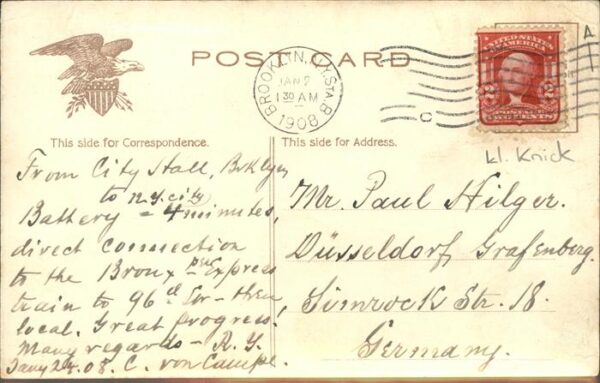 POST CARD
BROOKLYN, N.Y. STA. B
JAN 2
1 30 AM
1908
C
A
UNITED STATES OF AMERICA
2 2
POSTAGE
TWO CENTS
Kl. Knick
This side for Correspondence.
This side for Address.
From City Hall, Brklyn
to N.Y. City
Battery = 4 minutes,
direct connection
to the Bronx Express
train to 96
local. Great progress.
Many regards
08. C. von Campe.
Mr. Paul Hilger.
Düsseldorf Grafenberg.
Simrock Str. 18.
Germany.